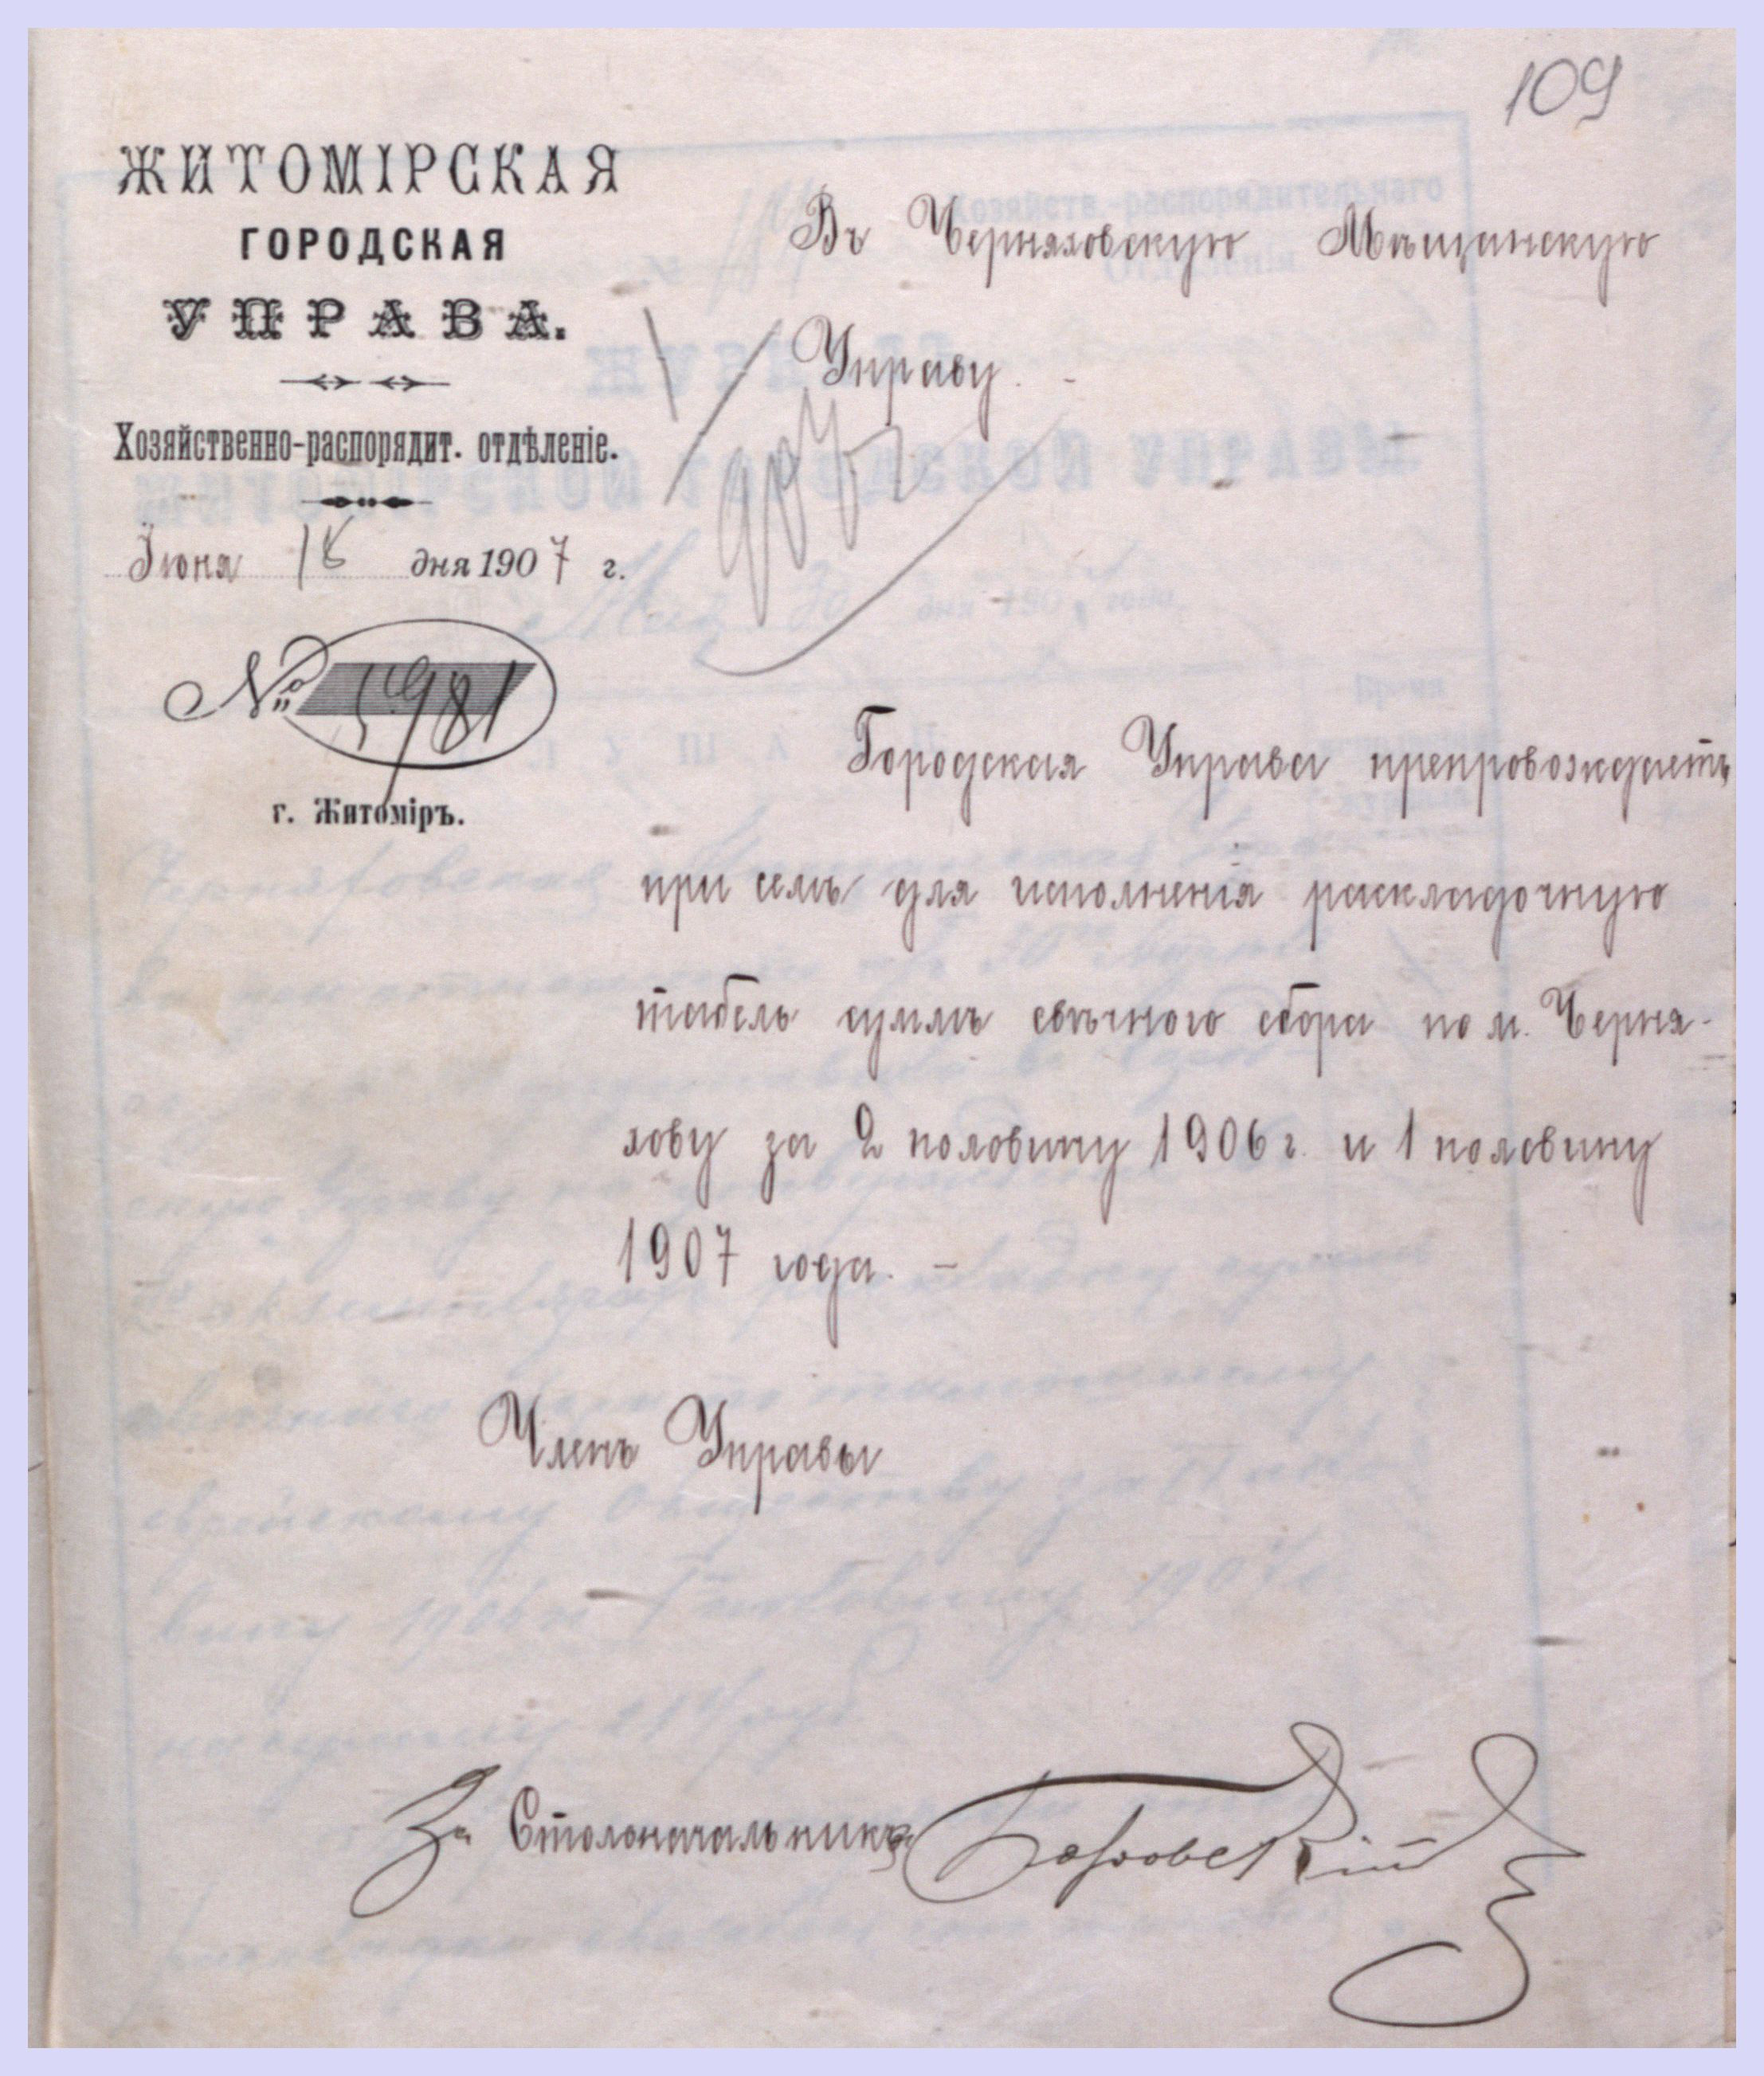 109
ЖИТОМІРСКАЯ
ГОРОДСКАЯ
УПРАВА.
Хозяйственно-распорядит. отдѣленіе.
Іюня 18 дня 1907 г.
№ 5981
г. Житоміръ.
Въ Черняховскую Мѣщанскую
Управу. -
Городская Управа препровождаетъ
при семъ для исполненія раскладочную
табель суммъ свѣчного сбора по м. Черня-
хову за 2 половину 1906 г. и 1 половину
1907 года. -
Членъ Управы
За Столоначальника